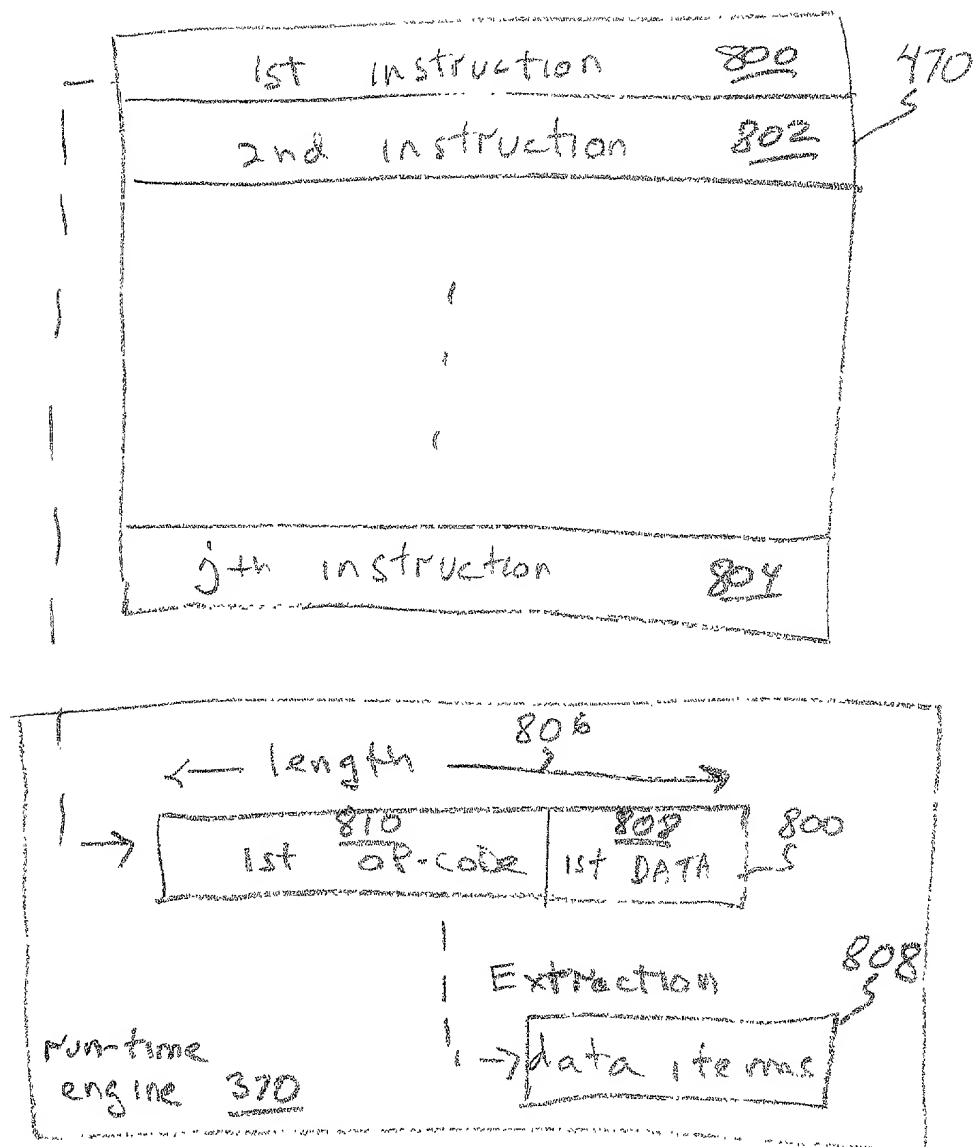 1st instruction 800
470
2nd instruction 802
jth instruction 804
806
length
810 808
1st OP-code 1st DATA
800
Extraction
808
data items
run-time
engine 370